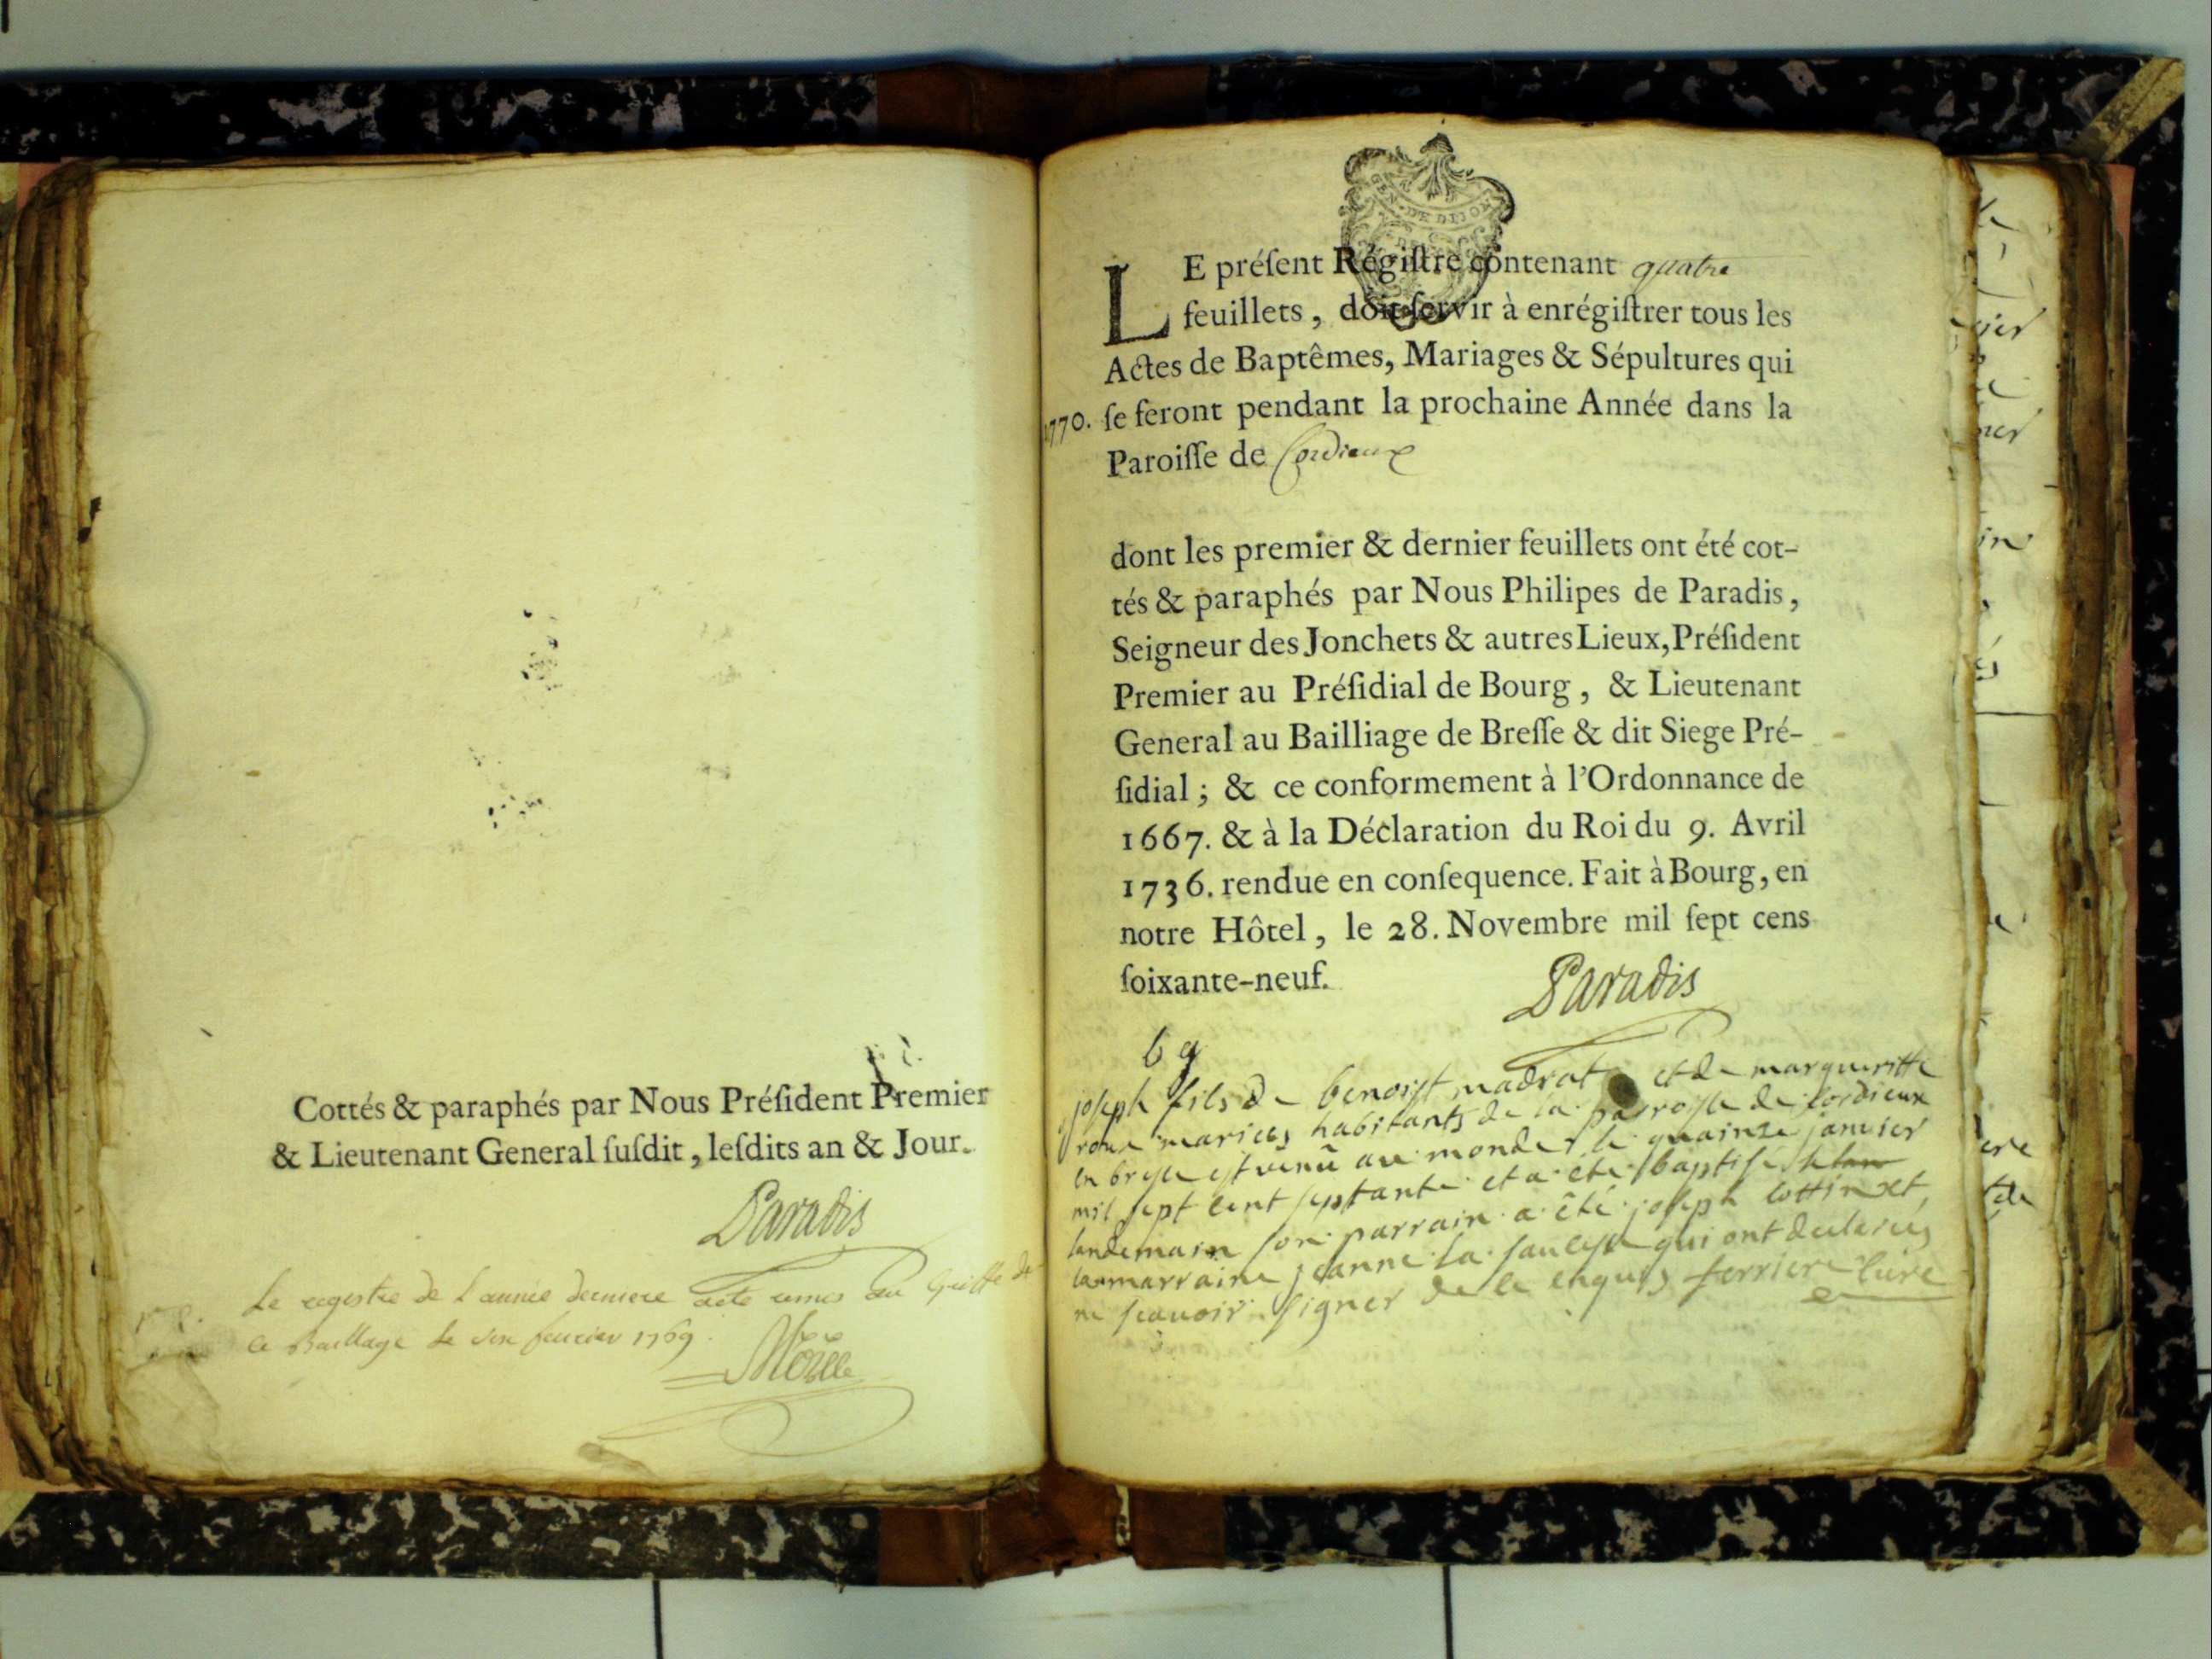 Cottés & paraphés par Nous Préſident Premier
& Lieutenant General ſuſdit, leſdits an & Jour.
Paradis
Le registre de L année derniere
ce Baillage le fevrier 1769.
GEN·DE DIJON
LE préſent Régiſtre contenant quatre
feuillets, doit ſervir à enrégiſtrer tous les
Actes de Baptêmes, Mariages & Sépultures qui
1770. ſe feront pendant la prochaine Année dans la
Paroiſſe de Cordieux
dont les premier & dernier feuillets ont été cot-
tés & paraphés par Nous Philipes de Paradis,
Seigneur des Jonchets & autres Lieux, Préſident
Premier au Préſidial de Bourg, & Lieutenant
General au Bailliage de Breſſe & dit Siege Pré-
ſidial; & ce conformement à l'Ordonnance de
1667. & à la Déclaration du Roi du 9. Avril
1736. rendue en conſequence. Fait à Bourg, en
notre Hôtel, le 28. Novembre mil ſept cens
ſoixante-neuf.
Paradis
joseph fils de benoist madrat et de margueritte
roux mariés habitants de la parroisse de Cordieux
en bresse est venu au monde le quainze janvier
mil sept cent septante et a été baptisé le
landemain son parrain a été joseph cottin et
la marraine jeanne la qui ont declarés
ne scavoir signer de ce enquis ferriere Curé